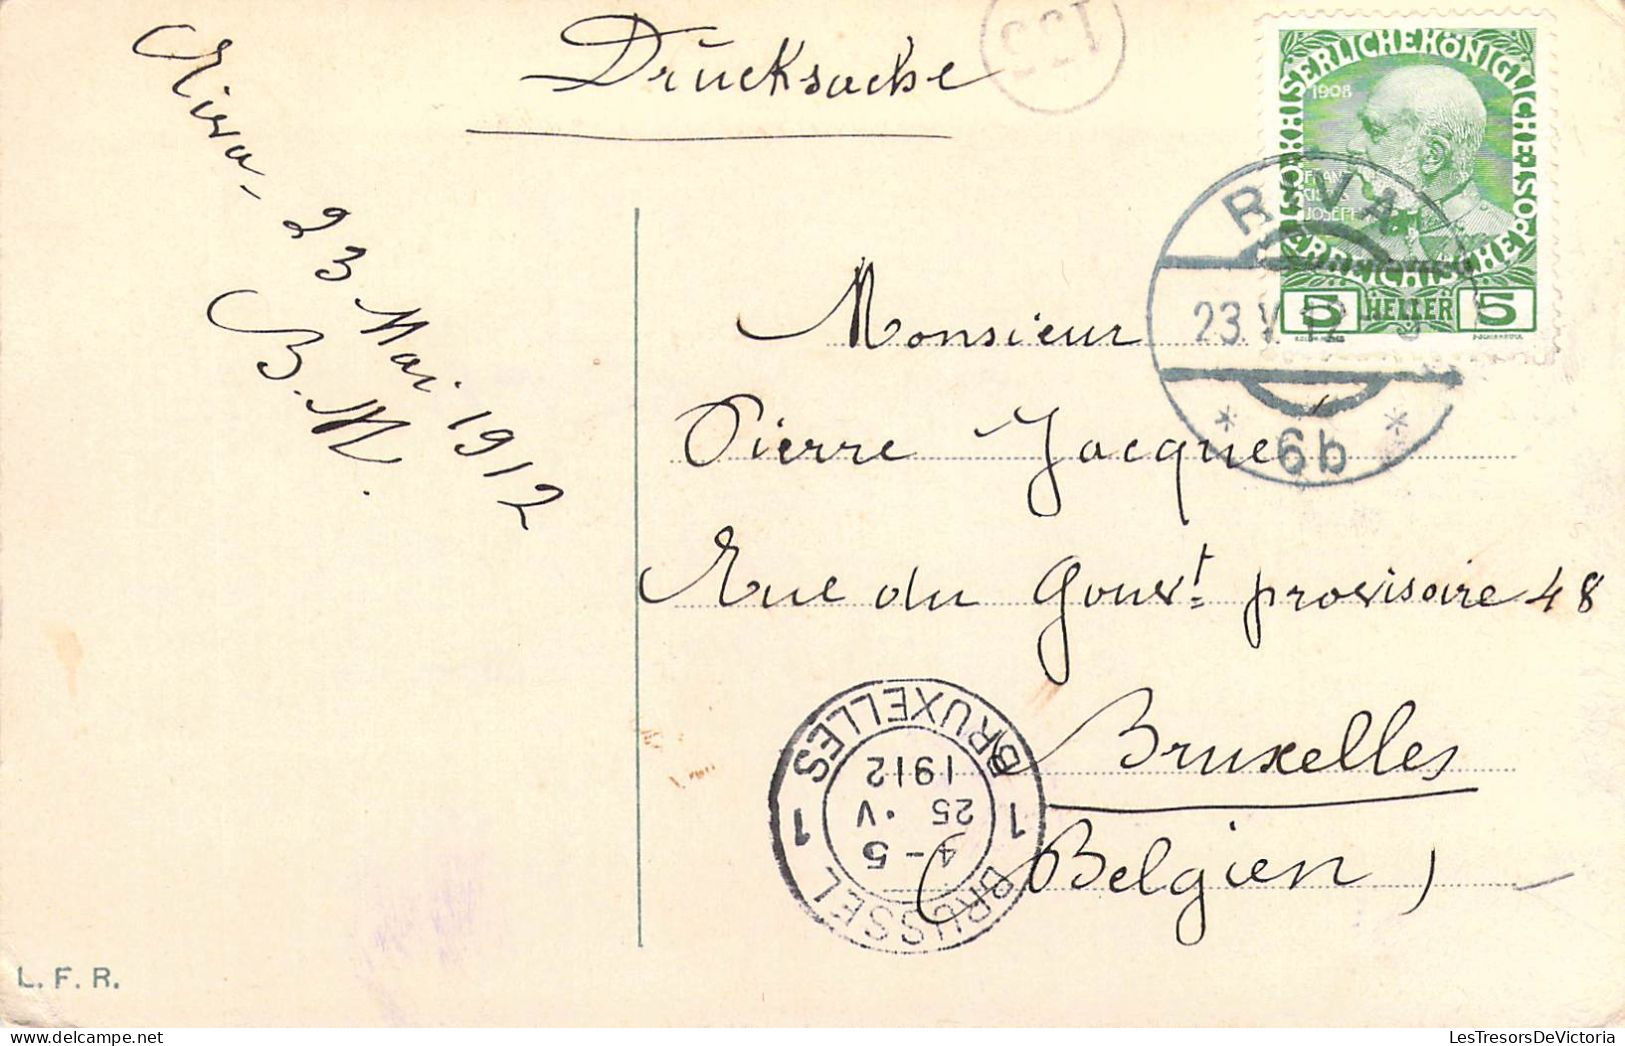 Drucksache
133
Riva, 23 Mai. 1912
B. M.
KAISERLICHEKÖNIGLICHE
ÖSTERREICHISCHEPOST
1908
FRANZ
JOSEPH
5 HELLER 5
RIVA
23.V.12
6b
Monsieur
Pierre Jacque
Rue du Gouvt provisoire 48
Bruxelles
(Belgien)
BRUXELLES
1 1
1912
25 · V
4-5
BRUSSEL
L. F. R.
LesTresorsDeVictoria